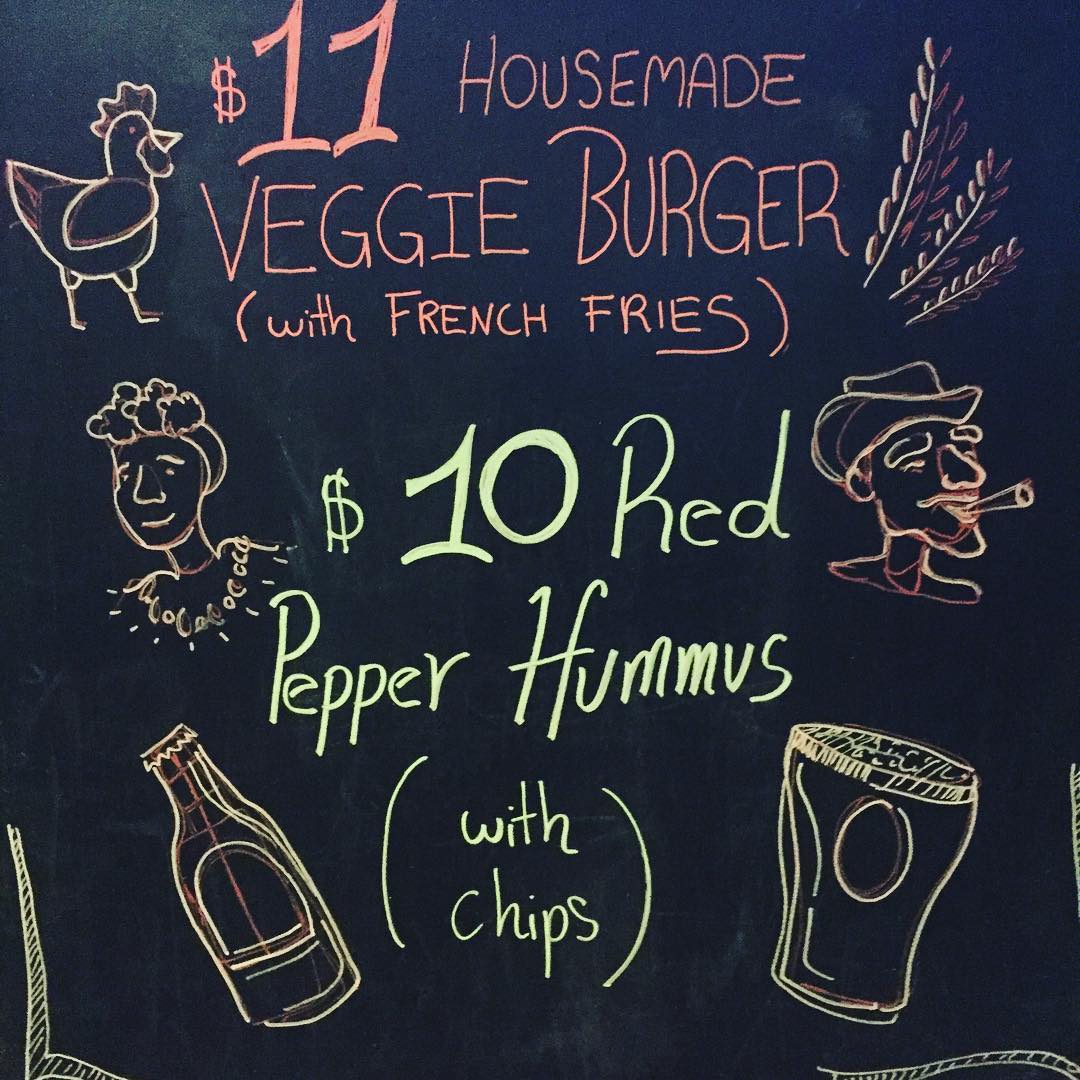 $11 HOUSEMADE
VEGGIE BURGER
(with FRENCH FRIES)
$10 Red
Pepper Hummus
(with
chips)